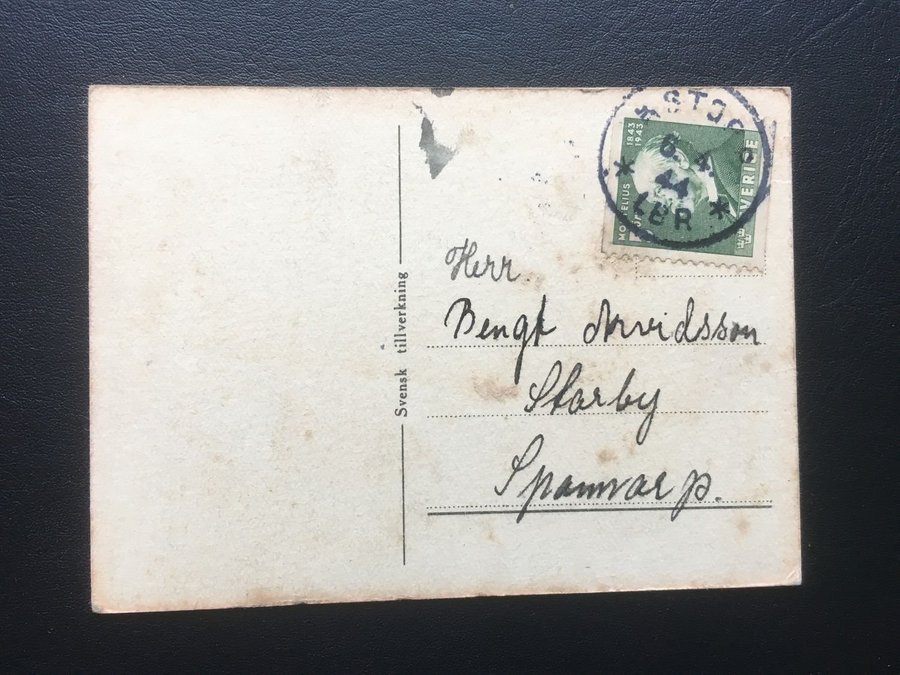 STJ
6. 4.
44
LBR
1843
1943
SVERIGE
Herr
Bengt Arvidsson
Starby
Spannarp.
Svensk tillverkning